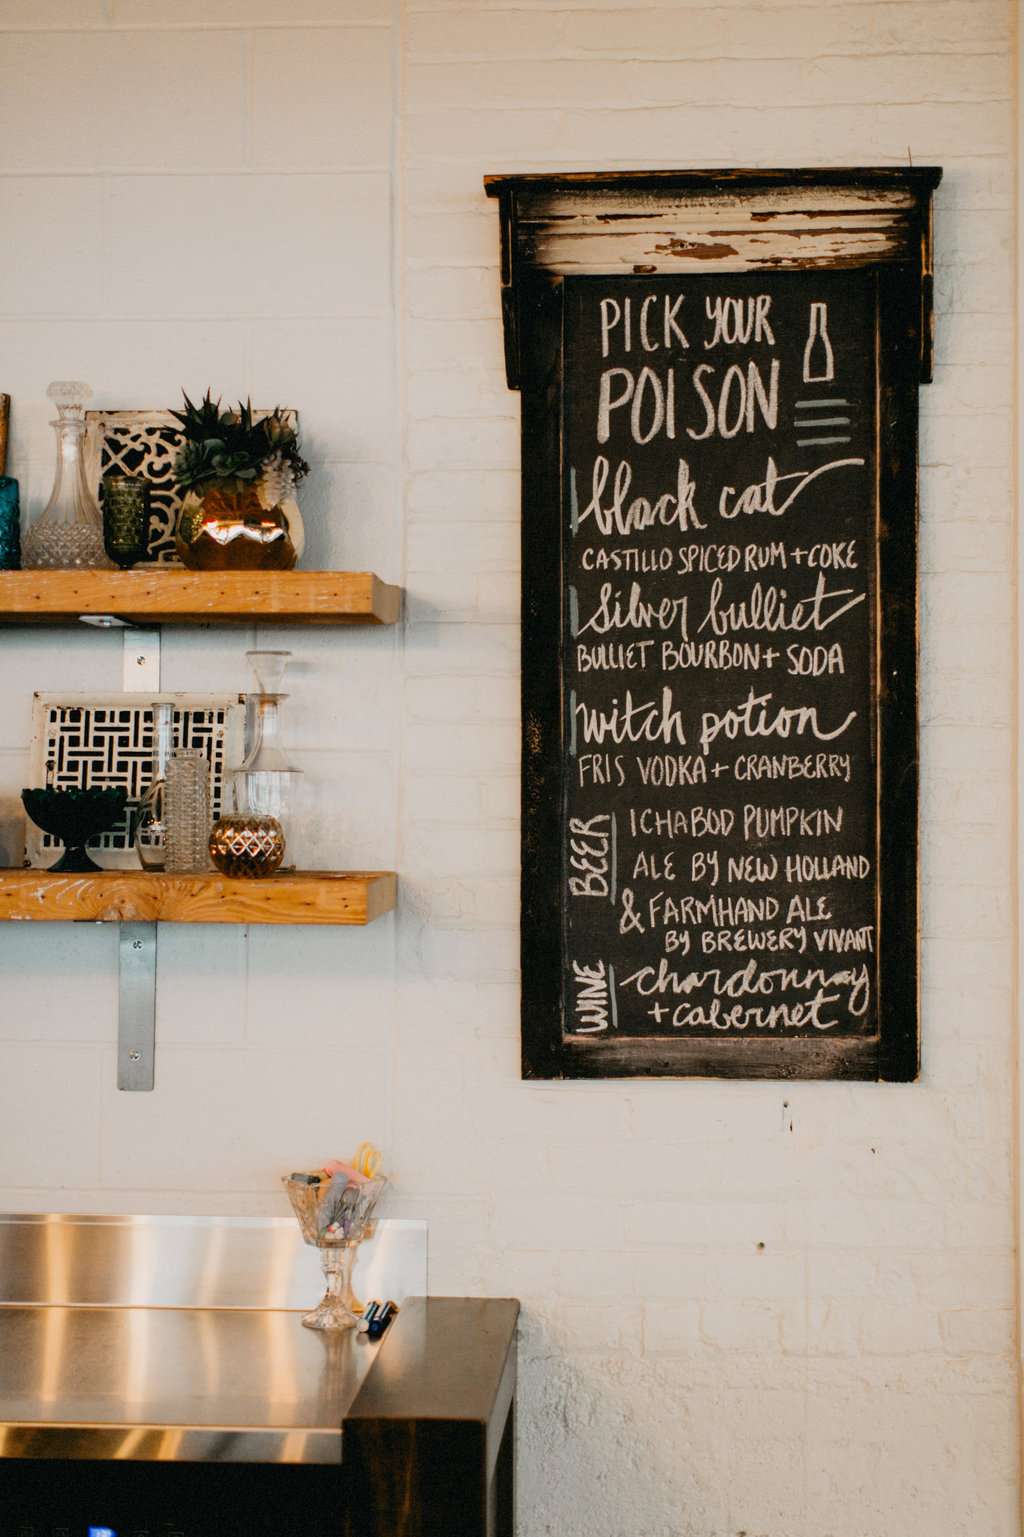 PICK YOUR
POISON
black cat
CASTILLO SPICED RUM + COKE
silver bulliet
BULLIET BOURBON + SODA
witch potion
FRIS VODKA + CRANBERRY
BEER
ICHABOD PUMPKIN
ALE BY NEW HOLLAND
& FARMHAND ALE
BY BREWERY VIVANT
WINE
chardonnay
+ cabernet